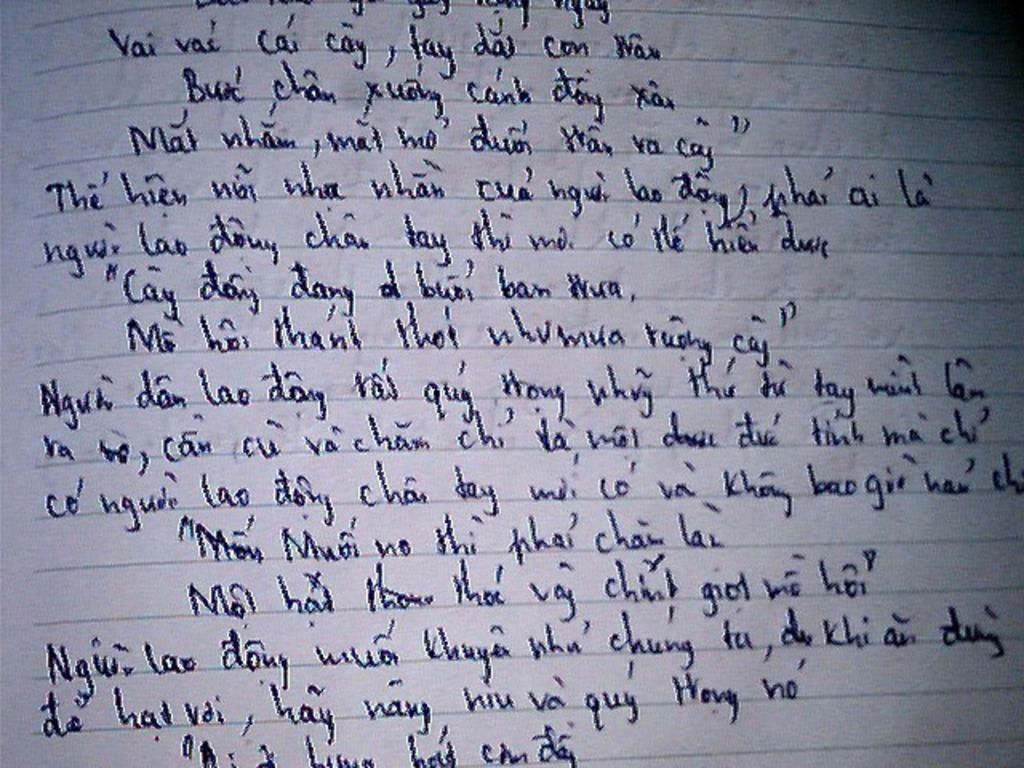 Vai vác cái cày, tay dắt con trâu
Bước chân xuống cánh đồng sâu
Mắt nhắm, mắt mở đuổi trâu ra cày"
Thể hiện nỗi nhọc nhằn của người lao động, phải ai là
người lao động chân tay thì mới có thể hiểu được
"Cày đồng đang buổi ban trưa,
Mồ hôi thánh thót như mưa ruộng cày"
Người dân lao động rất quý trọng những thứ từ tay mình làm
ra, cần cù và chăm chỉ là một đức tính mà chỉ
có người lao động chân tay mới có và không bao giờ
"Muốn no thì phải chăm làm
Một hạt thóc vàng chín giọt mồ hôi"
Người lao động muốn khuyên nhủ chúng ta, khi ăn đừng
để hạt rơi, hãy nâng niu và quý trọng nó